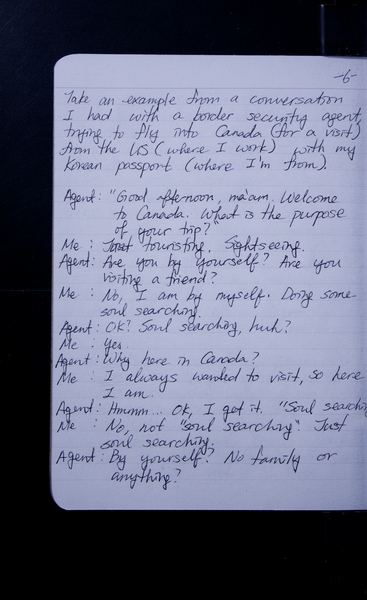 -6-
Take an example from a conversation
I had with a border security agent,
trying to fly into Canada (for a visit)
from the US (where I work) with my
Korean passport (where I'm from).
Agent: "Good afternoon, ma'am. Welcome
to Canada. What is the purpose
of your trip?"
Me : Just touristing. Sightseeing.
Agent: Are you by yourself? Are you
visiting a friend?
Me : No, I am by myself. Doing some
soul searching.
Agent: OK? Soul searching, huh?
Me : Yes.
Agent: Why here in Canada?
Me : I always wanted to visit, so here
I am.
Agent: Hmmm... OK, I get it. "Soul searching
Me : No, not "soul searching". Just
soul searching.
Agent: By yourself? No family or
anything?